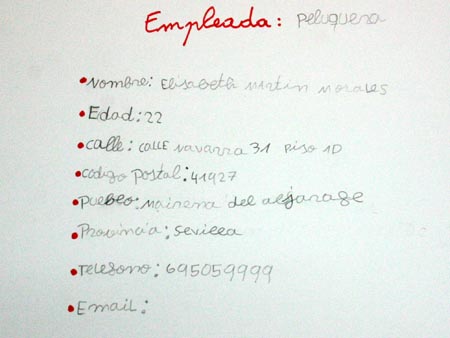 Empleada: Peluquera
• Nombre: Elisabeth Martín Morales
• Edad: 22
• calle: calle navarra 31 Piso 1D
• código Postal: 41927
• Pueblo: Mairena del aljarage
• Provincia: Sevilla
• Telefono: 695059999
• Email: